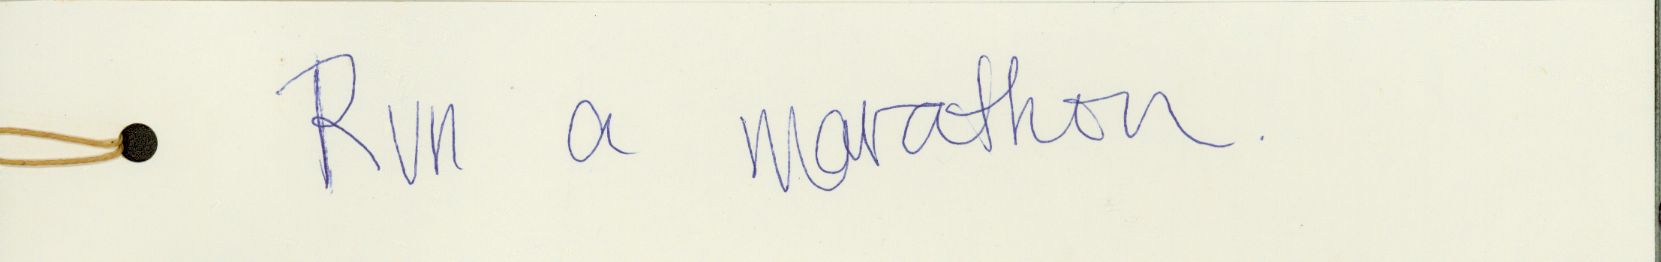 Run a marathon.